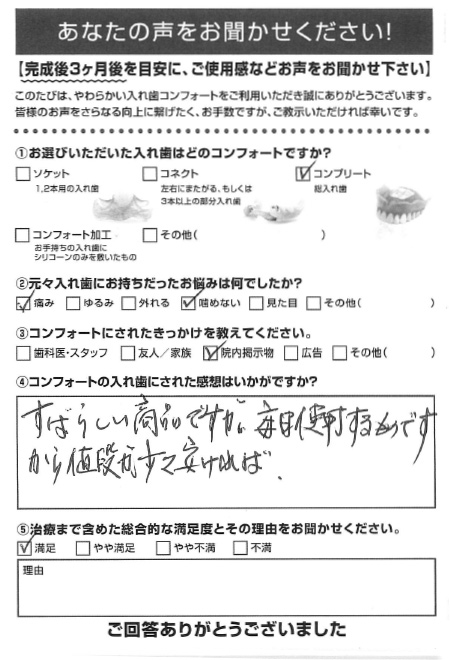 あなたの声をお聞かせください!
【完成後3ヶ月後を目安に、ご使用感などお声をお聞かせ下さい】
このたびは、やわらかい入れ歯コンフォートをご利用いただき誠にありがとうございます。
皆様のお声をさらなる向上に繋げたく、お手数ですが、ご教示いただければ幸いです。
①お選びいただいた入れ歯はどのコンフォートですか?
□ソケット □コネクト ☑コンプリート
1,2本用の入れ歯 左右にまたがる、もしくは 総入れ歯
3本以上の部分入れ歯
□コンフォート加工 □その他( )
お手持ちの入れ歯に
シリコーンのみを敷いたもの
②元々入れ歯にお持ちだったお悩みは何でしたか?
☑痛み □ゆるみ □外れる ☑噛めない □見た目 □その他( )
③コンフォートにされたきっかけを教えてください。
□歯科医・スタッフ □友人/家族 ☑院内掲示物 □広告 □その他( )
④コンフォートの入れ歯にされた感想はいかがですか?
すばらしい商品ですが、毎日使用するものです
から値段が少て安ければ.
⑤治療まで含めた総合的な満足度とその理由をお聞かせください。
☑満足 □やや満足 □やや不満 □不満
理由
ご回答ありがとうございました